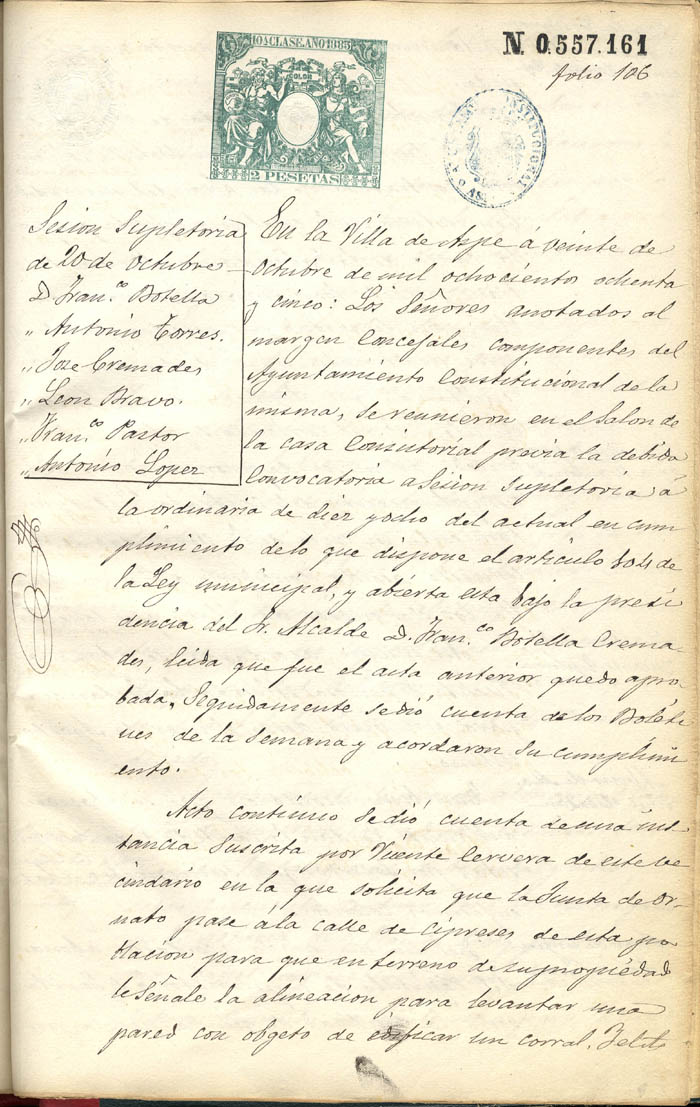 10ª CLASE. AÑO 1885
COLON
2 PESETAS
N. 0.557.161
folio 106
CONSTITUCIONAL
Sesion Supletoria
de 20 de Octubre
D. Fran.co Botella
" Antonio Torres.
" Jose Cremades
" Leon Bravo.
" Fran.co Pastor
" Antonio Lopez
En la Villa de Aspe á veinte de
Octubre de mil ochocientos ochenta
y cinco: Los Señores anotados al
margen Concejales componentes del
Ayuntamiento Constitucional de la
misma, se reunieron en el Salon de
la casa Consistorial previa la debida
Convocatoria a Sesion Supletoria á
la ordinaria de diez y ocho del actual en cum
plimiento de lo que dispone el articulo 104 de
la Ley municipal, y abierta esta bajo la presi
dencia del Sr. Alcalde D. Fran.co Botella Crema
des, leida que fue el acta anterior quedo apro-
bada. Seguidamente se dió cuenta de los Boleti
nes de la Semana y acordaron su cumplimi
ento.
Acto continuo se dió cuenta de una ins
tancia suscrita por Vicente Cervera de este ve
cindario en la que solicita que la Junta de Or-
nato pase á la calle de Cipreses de esta po
blacion para que en terreno de su propiedad
le señale la alineacion para levantar una
pared con obgeto de edificar un corral.